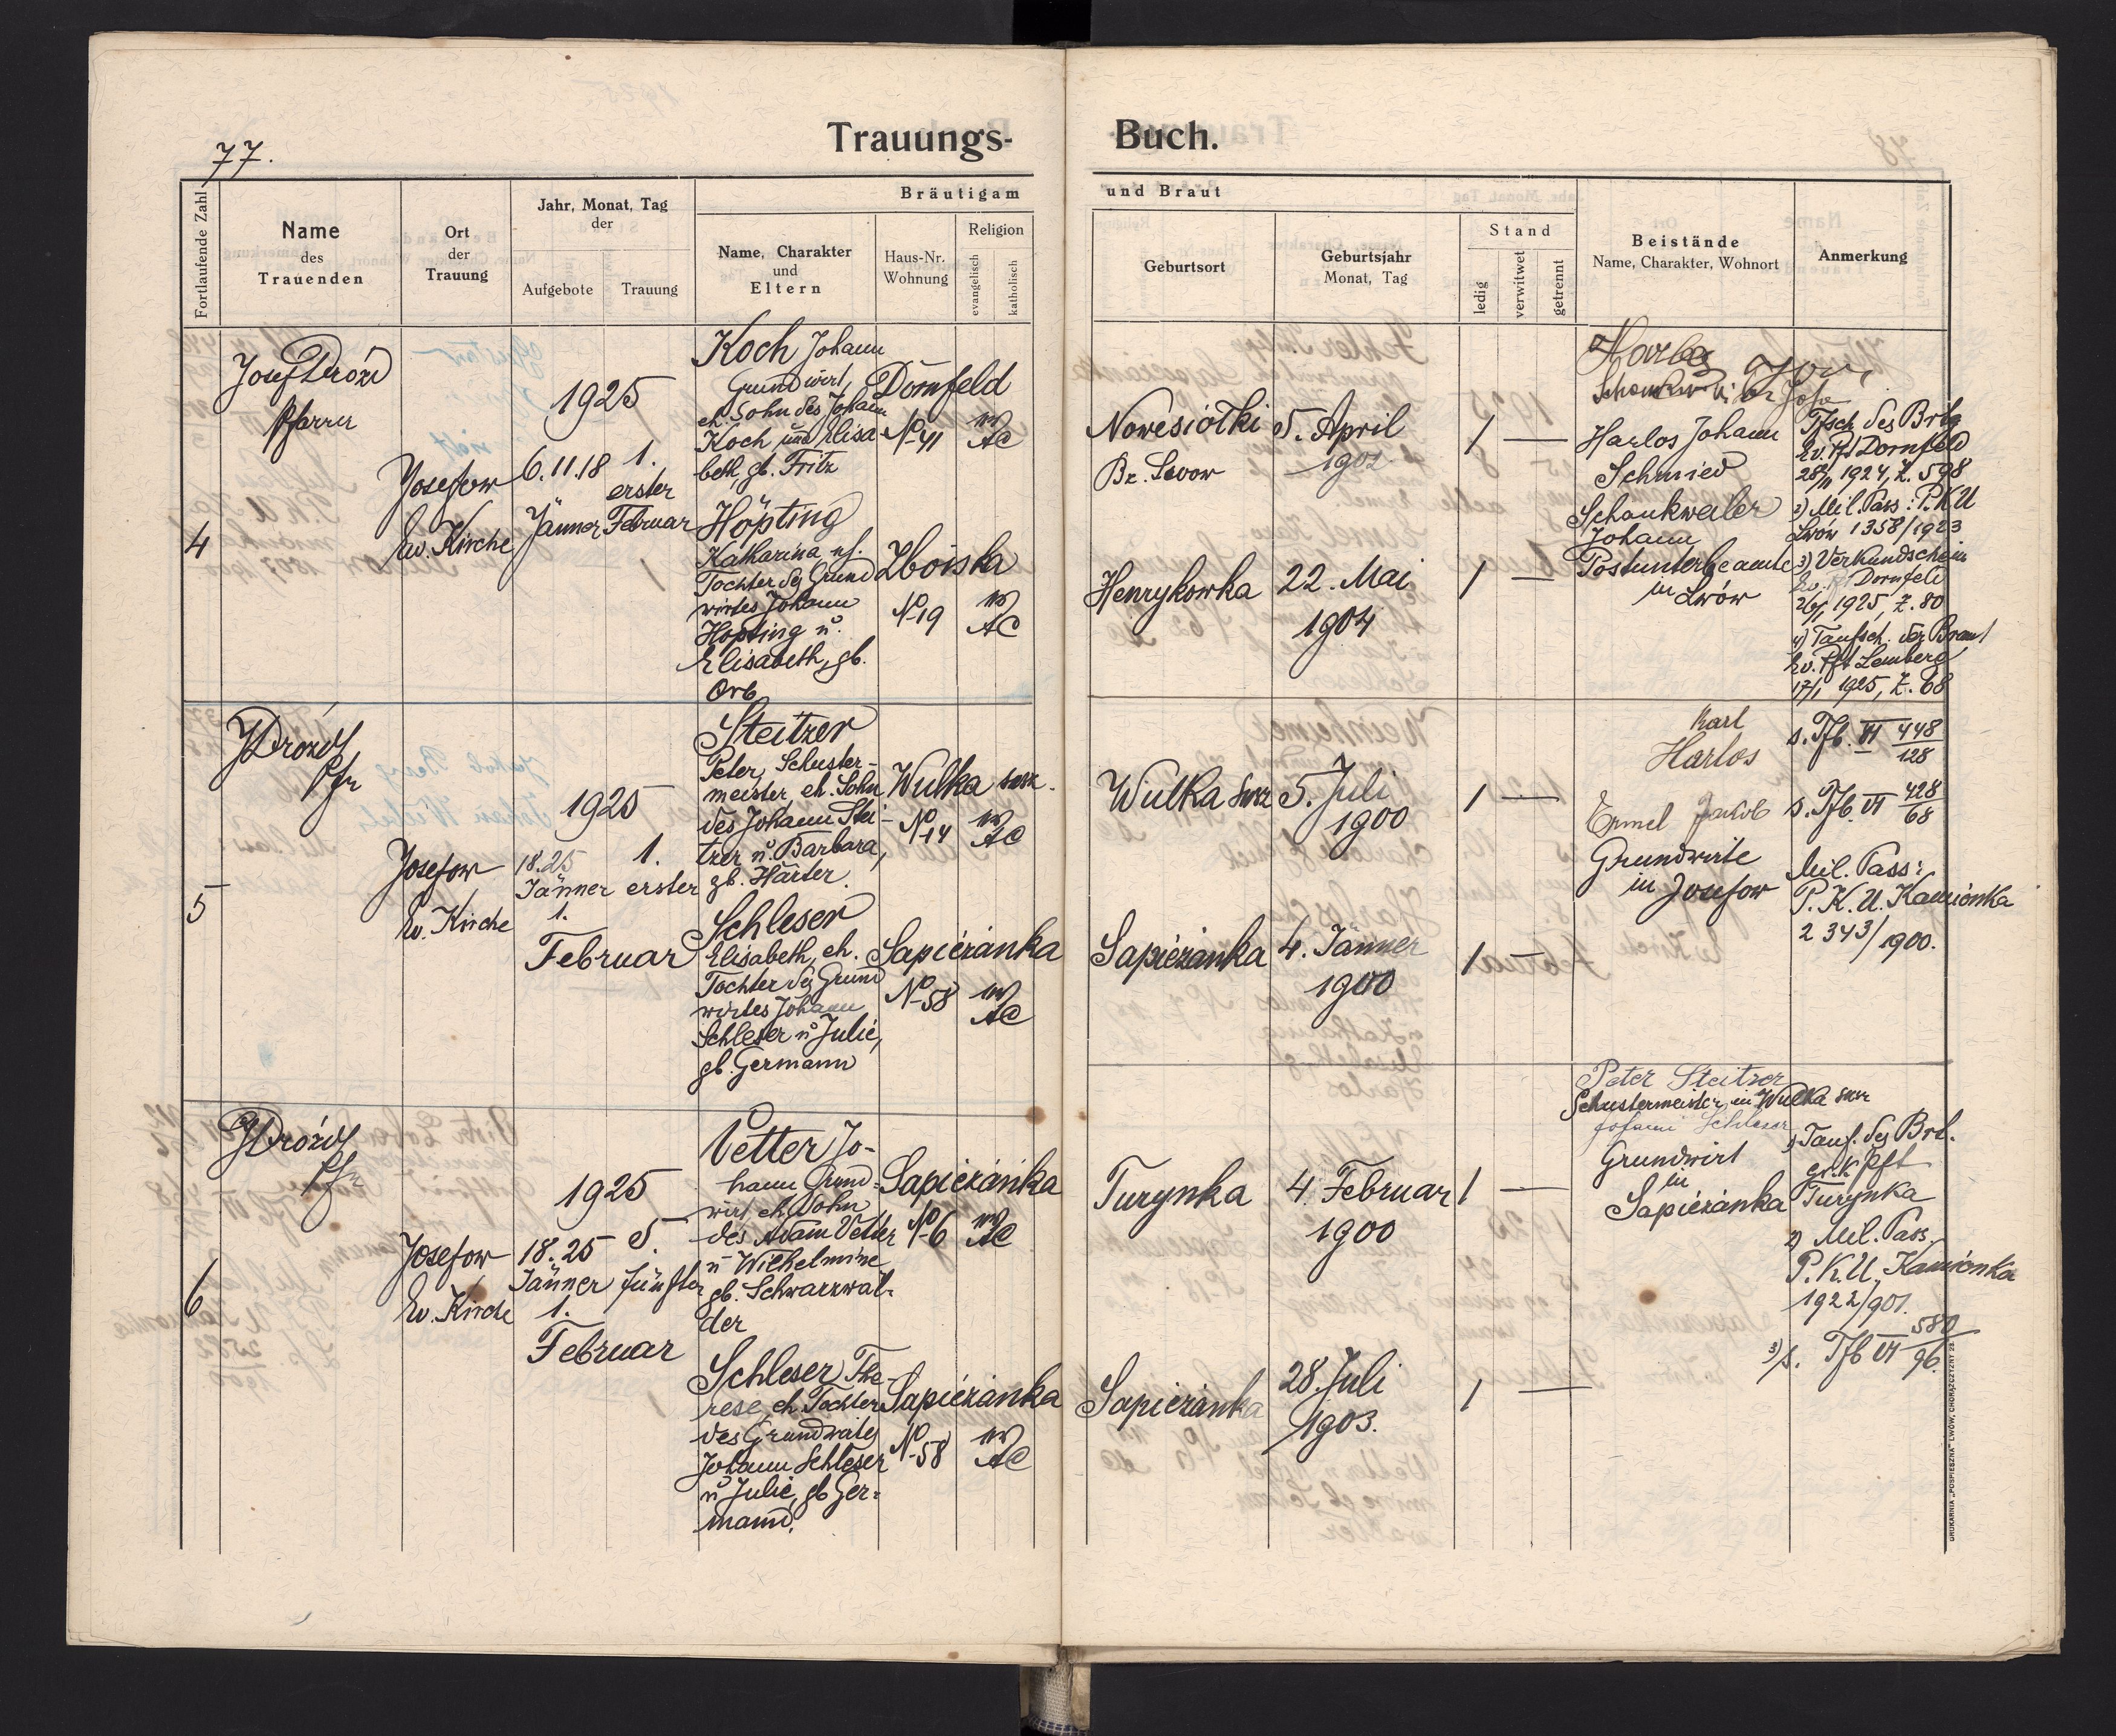 77.
Trauungs-
Buch.
Fortlaufende Zahl
Name
des
Trauenden
Ort
der
Trauung
Jahr, Monat, Tag
der
Aufgebote
Trauung
Bräutigam
Name, Charakter
und
Eltern
Haus-Nr.
Wohnung
Religion
evangelisch
katholisch
und Braut
Geburtsort
Geburtsjahr
Monat, Tag
Stand
ledig
verwitwet
getrennt
Beistände
Name, Charakter, Wohnort
Anmerkung
4
Josef Drozd
Pfarrer
Josefow
Ev. Kirche
1925
6.11.18
Jänner
1.
erster
Februar
Koch Johann
Grundwirt,
eh. Sohn des Johann
Koch und Elisa
beth, gb. Fritz
Dornfeld
No 41
AC
Höpting
Katharina
Tochter des Grund
wirtes Johann
Höpting u.
Elisabeth, gb.
Orb
Zboiska
No 19
AC
Nowesiolki
Bz. Lwow
5. April
Henrykowka
22. Mai
1904
Harlos Johann
Schmied
Schankweiler
Johann
Postunterbeamte
in Lwów
Tfsch des Brtg
Ev. Pft Dornfeld
28/11 1924, Z. 598
2) Mil. Pass: P.K.U
Lwów 1358/1923
3) Verkundschein
Dornfeld
1925, Z. 80
4) Taufsch. der Braut
Ev. Pft Lemberg
17/1 1925, Z. 68
5
JDrozd
Pfr
Josefow
Ev. Kirche
1925
18.25
Jänner
1.
Februar
1.
erster
Steitzer
Peter, Schuster-
meister, eh. Sohn
des Johann Stei-
tzer u. Barbara,
gb. Härter.
Wulka
No 14
AC
Schleser
Elisabeth, eh.
Tochter des Grund
wirtes Johann
Schleser u. Julie,
gb. Germann
Sapiezanka
No 58
AC
Wulka
5. Juli
1900
Sapiezanka
4. Jänner
1900
Karl
Harlos
Ermel Jakob
Grundwirte
in Josefow
s. Tfb. VI 448
128
s. Tfb. VI 428
68
Mil. Pass:
P. K. U. Kamionka
2343/1900.
6
JDrozd
Pfr
Josefow
Ev. Kirche
1925
18.25
Jänner
1.
Februar
5.
fünfter
Vetter Jo-
hann Grund-
wirt eh. Sohn
des Adam Vetter
u. Wilhelmine
gb. Schwarzwäl-
der
Sapiezanka
No 6
AC
Schleser The-
rese, eh. Tochter
des Grundwirtes
Johann Schleser
u. Julie, gb Ger-
mann.
Sapiezanka
No 58
AC
Turynka
4. Februar
1900
Sapiezanka
28. Juli
1903.
Peter Steitzer
Schustermeister in Wulka
Johann Schleser
Grundwirt
in
Sapiezanka
1) Tauf. des Brt.
gr. k. Pft
Turynka
2) Mil. Pass.
P. K. U. Kamionka
1922/901.
3) s. Tfb VI 580
96.
DRUKARNIA „POSPIESZNA" LWÓW, CHORĄŻCZYZNY 28